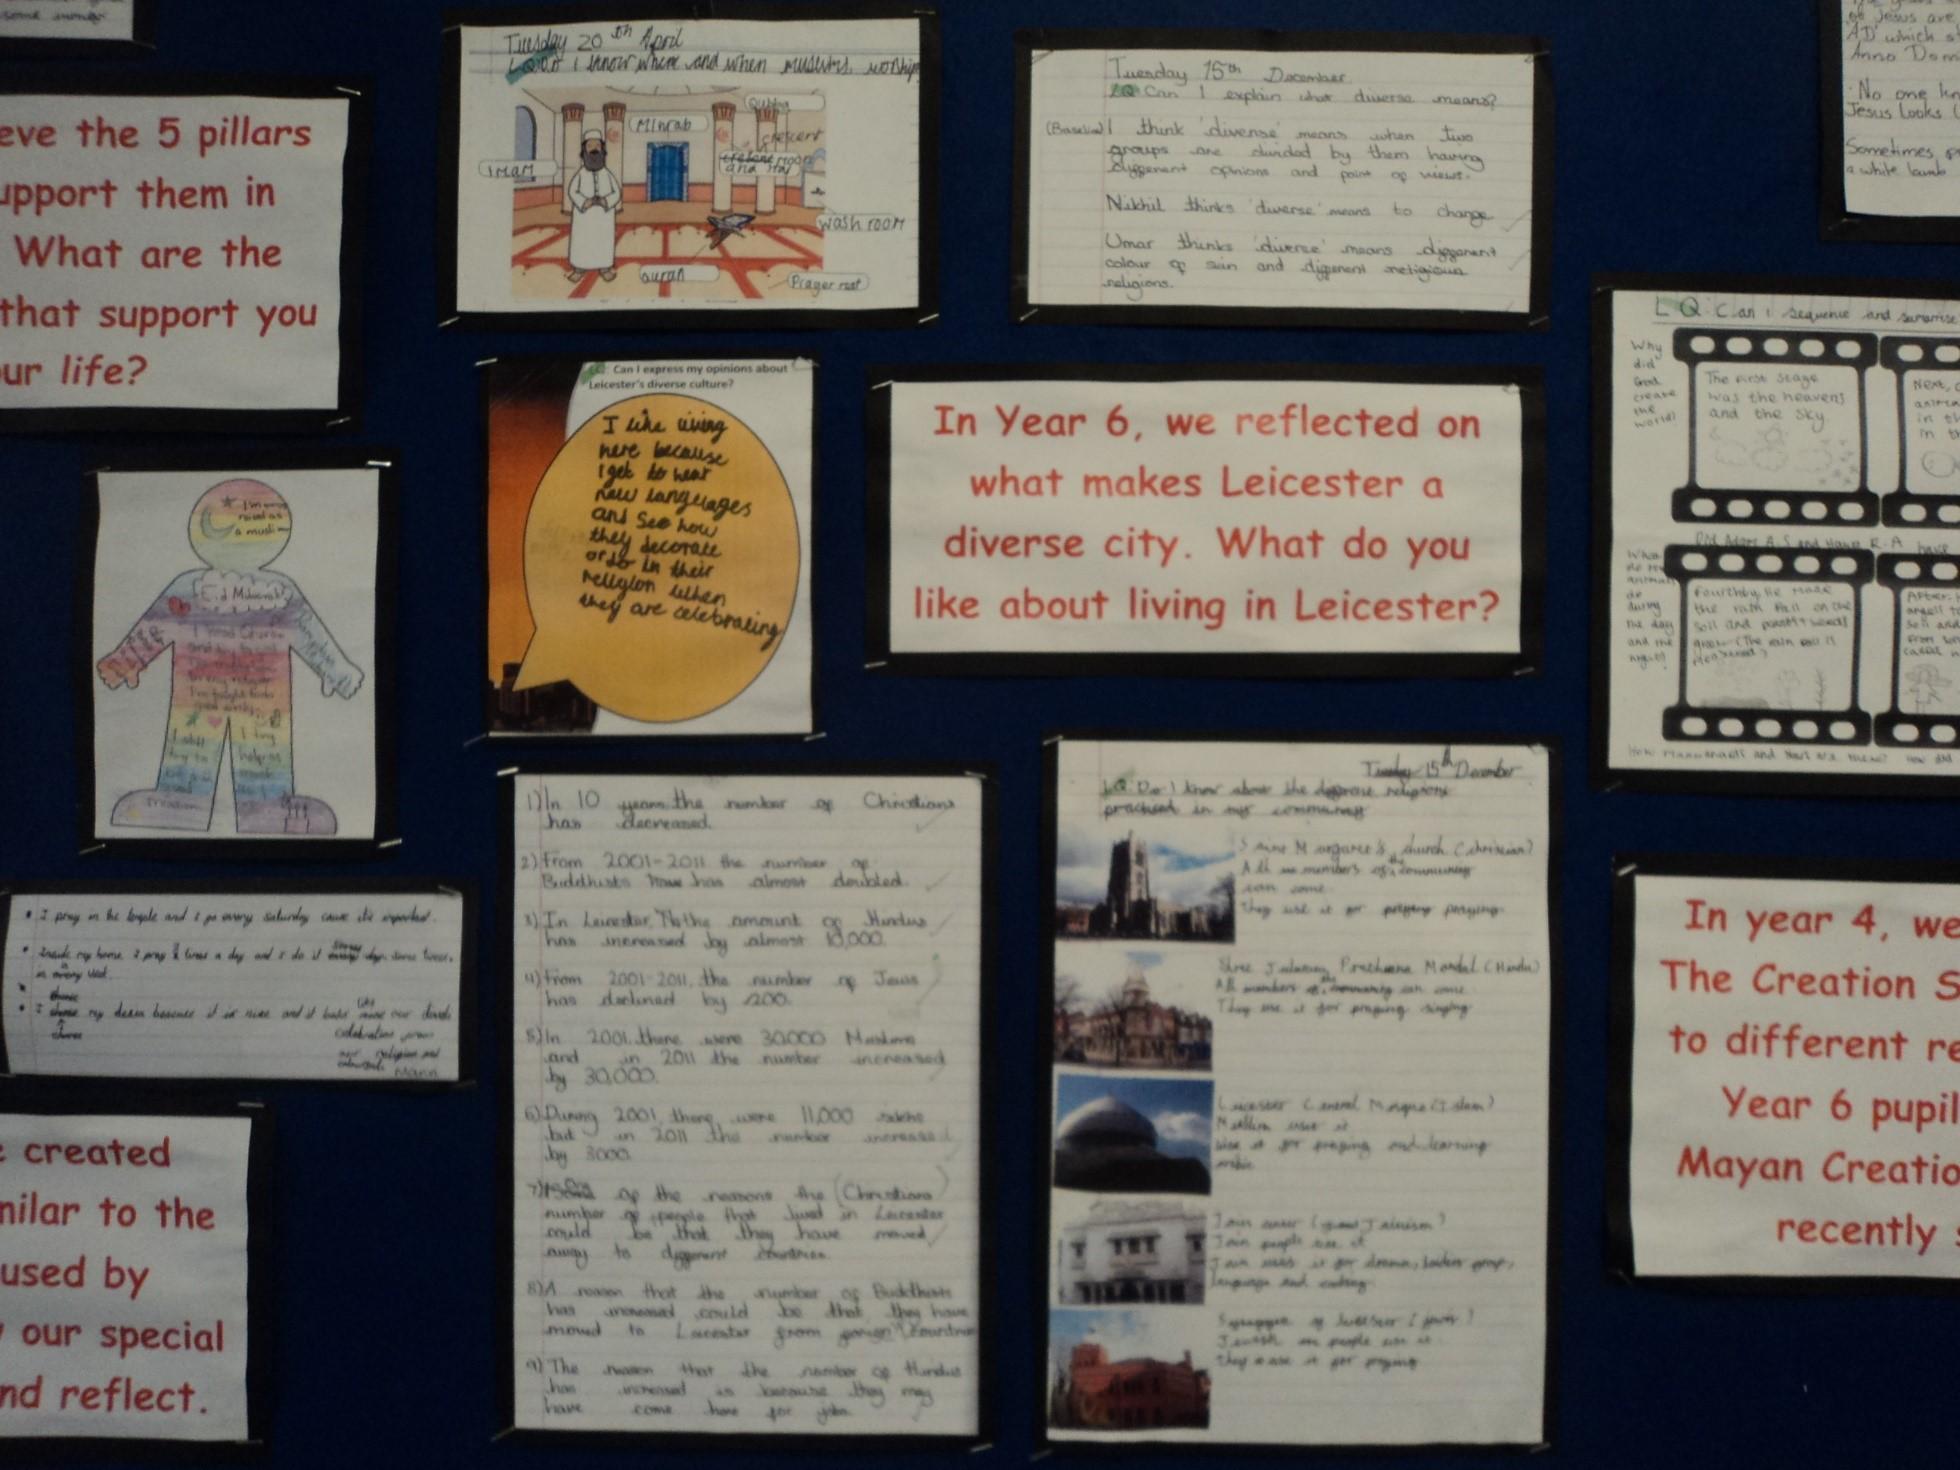 eve the 5 pillars
upport them in
What are the
that support you
our life?
Tuesday 20th April
LQ: Do I know where and when muslims worship
Qublna
Minrab
crescent
moon
and star
imam
wash room
Quran
Prayer mat
Tuesday 15th December
LQ: Can I explain what diverse means?
(Baseline) I think 'diverse' means when two
groups are divided by them having
different opinions and point of views.
Nikhil thinks 'diverse' means to change
Umar thinks 'diverse' means different
colour of skin and different religious
religions.
of Jesus are
AD' which st
Anno Dom
No one kn
Jesus looks
Sometimes
a white lamb
LQ: Can I express my opinions about
Leicester's diverse culture?
I like living
here because
I get to hear
new languages
and see how
they decorate
or do in their
religion when
they are celebrating
In Year 6, we reflected on
what makes Leicester a
diverse city. What do you
like about living in Leicester?
LQ: Can I sequence and summarise
Why
did
God
create
the
world?
The first stage
was the heavens
and the sky.
Next,
in th
in th
Fourthly, He made
the rain fall on the
soil and
After
soil and
during
the day
and the
night?
I'm
raised as
a muslim
Eid Mubarak
I still
try to
good
I try
help as
much
as I
1) In 10 years the number of Christians
has decreased.
2) From 2001-2011 the number of
Buddhists have has almost doubled.
3) In Leicester, the amount of Hindus
has increased by almost 10,000.
4) From 2001-2011, the number of Jews
has declined by 200.
5) In 2001, there were 30,000 Muslims
and in 2011 the number increased
by 30,000.
6) During 2001, there were 11,000 sikhs
but in 2011 the number increased
by 3000.
7) of the reasons the (Christians)
number of people that lived in Leicester
could be that they have moved
away to different countries.
8) A reason that the number of Buddhists
has increased could be that they have
moved to Leicester from foreign countries
9) The reason that the number of Hindus
has increased is because they may
have come here for jobs.
Tuesday 15th December
LQ: Do I know about the different religions
practised in my community
Saint Margaret's church (Christian)
All members of the community
can come.
They use it for praying.
Shree Prarthana Mandal (Hindu)
All members of the community can come.
They use it for praying singing
Leicester Central Mosque (Islam)
Muslim use it
use it for praying and learning
arabic
Jain center (Jainism)
Jain people use it
Jain uses it for drama,
language and
Synagogue of Leicester (jewis)
Jewish people use it
They use it for praying
• I pray in the temple and I go every saturday cause it's important.
• Inside my home, I pray 2 times a day and I do it
• I my because it is nice and it
our religion and
Mann
e created
milar to the
used by
our special
nd reflect.
In year 4, we
The Creation S
to different re
Year 6 pupil
Mayan Creatio
recently s